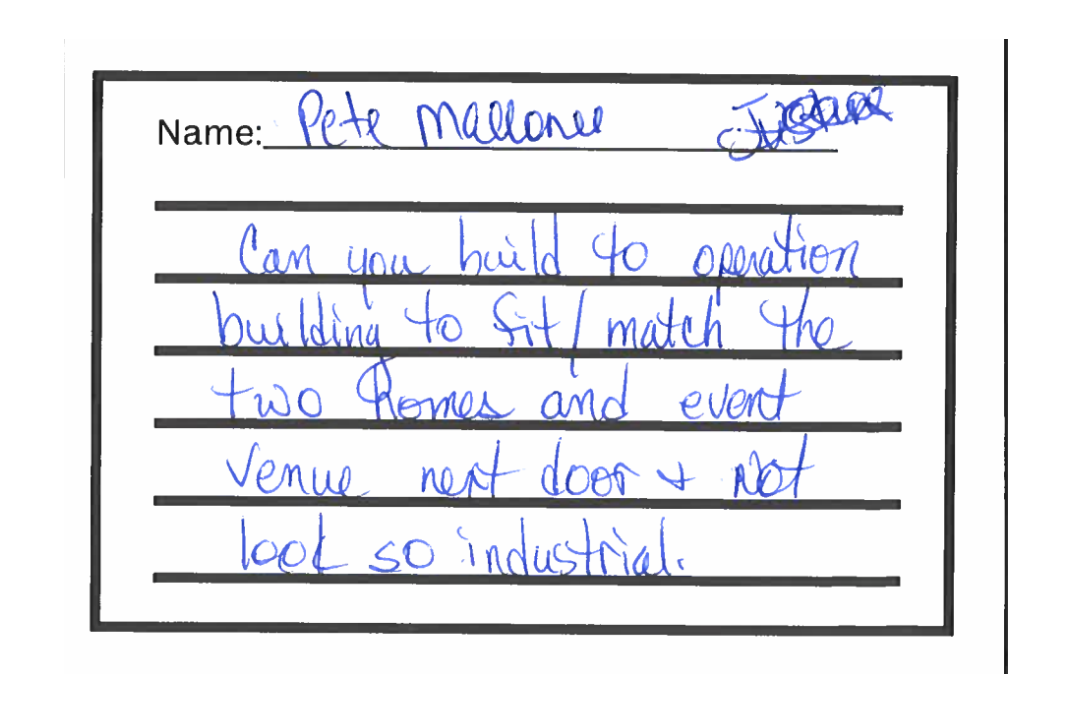 Name: Pete Mallonee
Can you build to operation
building to fit/match the
two homes and event
venue next door & Not
look so industrial.